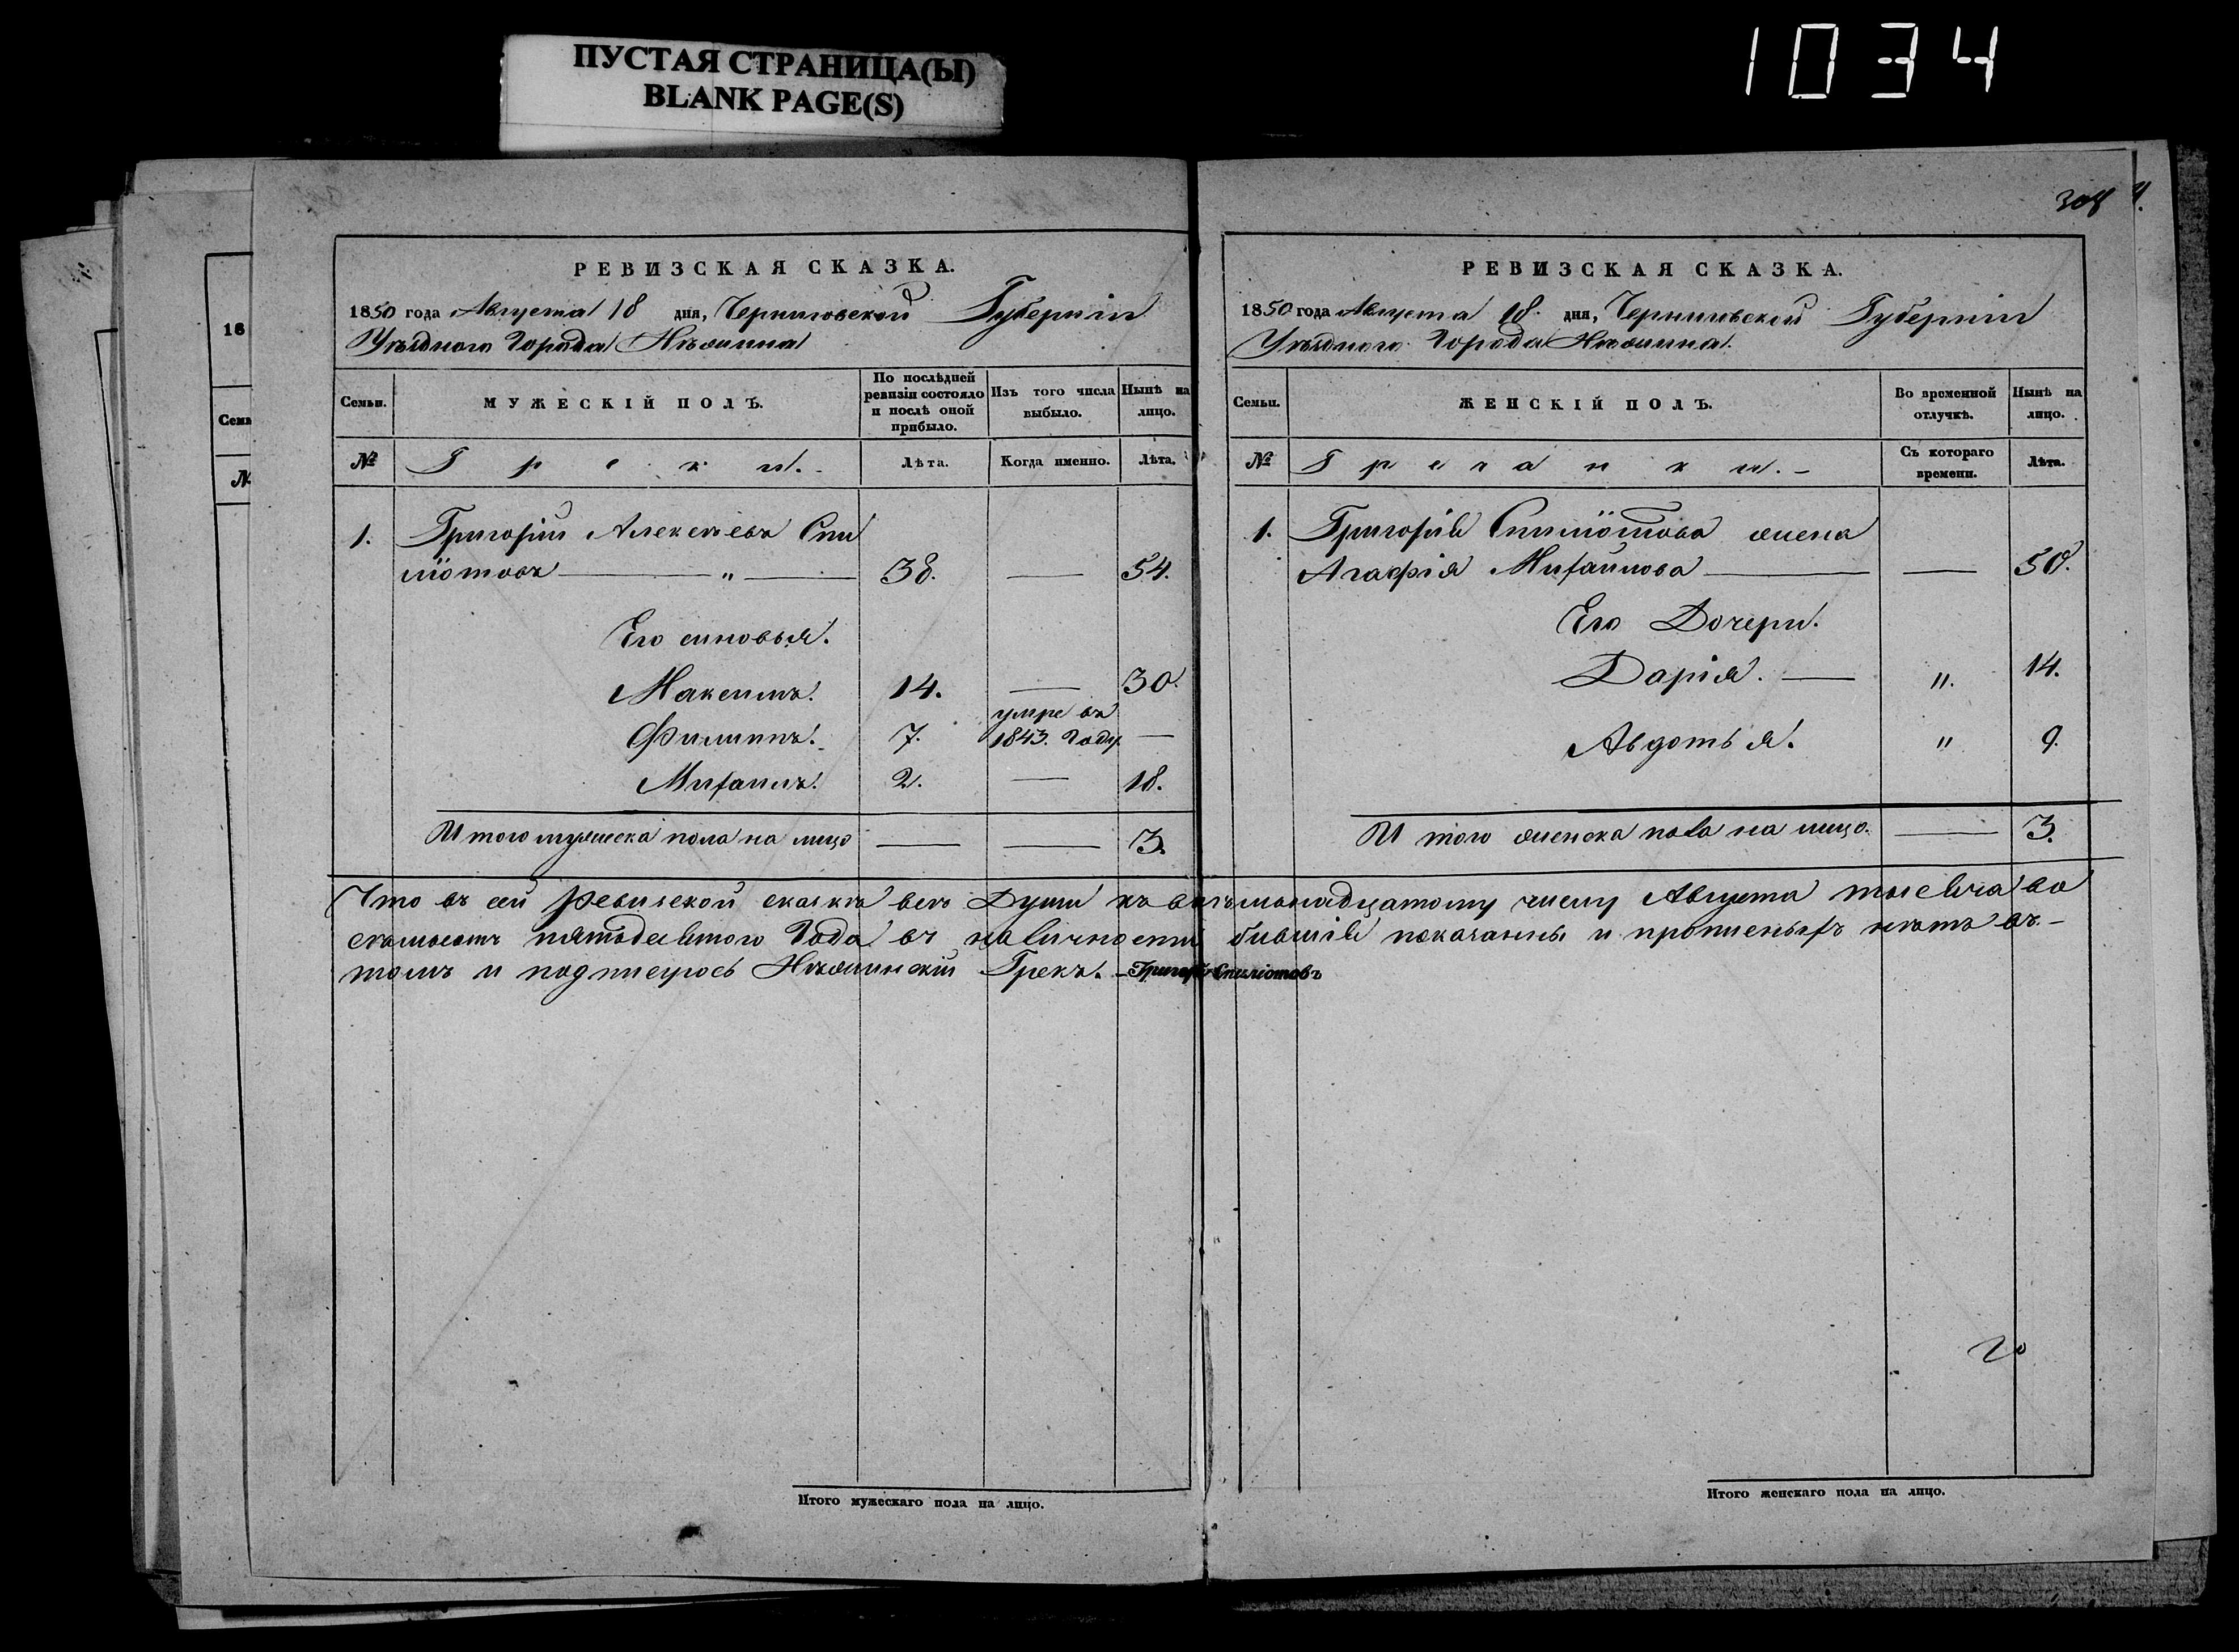 ПУСТАЯ СТРАНИЦА(Ы)
BLANK PAGE(S)
1034
308
18
Семь
№
РЕВИЗСКАЯ СКАЗКА.
1850 года Августа 18 дня, Черниговской Губерніи
Уѣзднаго Города Нѣжина
Семьи.
МУЖЕСКІЙ ПОЛЪ.
По послѣдней ревизіи состояло и послѣ оной прибыло.
Изъ того числа выбыло.
Нынѣ на лицо.
№
Греки.
Лѣта.
Когда именно.
Лѣта.
1. Григорій Алексѣевъ Спи
ліотовъ — " — 38. — 54.
Его синовья.
Максимъ. 14. — 30.
Филиппъ. 7. умре въ 1843. Году —
Михаилъ. 2. — 18.
Итого мужеска пола на лицо — — 3.
РЕВИЗСКАЯ СКАЗКА.
1850 года Августа 18. дня, Черниговской Губерніи
Уѣзднаго Города Нѣжина.
Семьи.
ЖЕНСКІЙ ПОЛЪ.
Во временной отлучкѣ.
Нынѣ на лицо.
№
Гречанки.
Съ котораго времени.
Лѣта.
1. Григорія Спиліотова жена
Агафія Михайлова — — 50.
Его Дочери.
Дарія. — ". 14.
Авдотья. " 9.
Итого женска пола на лицо. — 3.
Что въ сей Ревизской сказкѣ всѣ Души къ восѣмьнадцатому числу Августа тысеча во
семьсотъ пятодесятого Года въ наличности бившія показанны и прописныхъ нѣтъ въ
томъ и подписуюсь Нѣжинскій Грекъ. Григорій Спиліотовъ
Итого мужескаго пола на лицо.
Итого женскаго пола на лицо.